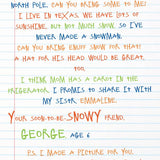 NORTH POLE. CAN YOU BRING SOME TO ME?
I LIVE IN TEXAS. WE HAVE LOTS OF
SUNSHINE, BUT NOT MUCH SNOW, SO I'VE
NEVER MADE A SNOWMAN.
CAN YOU BRING ENUFF SNOW FOR THAT?
A HAT FOR HIS HEAD WOULD BE GREAT,
TOO.
I THINK MOM HAS A CAROT IN THE
FRIGERATOR. I PROMIS TO SHARE IT WITH
MY SISTR, EMMALINE.
YOUR SOON-TO-BE-SNOWY FREND,
GEORGE, AGE 6
P.S. I MADE A PICTURE FOR YOU.